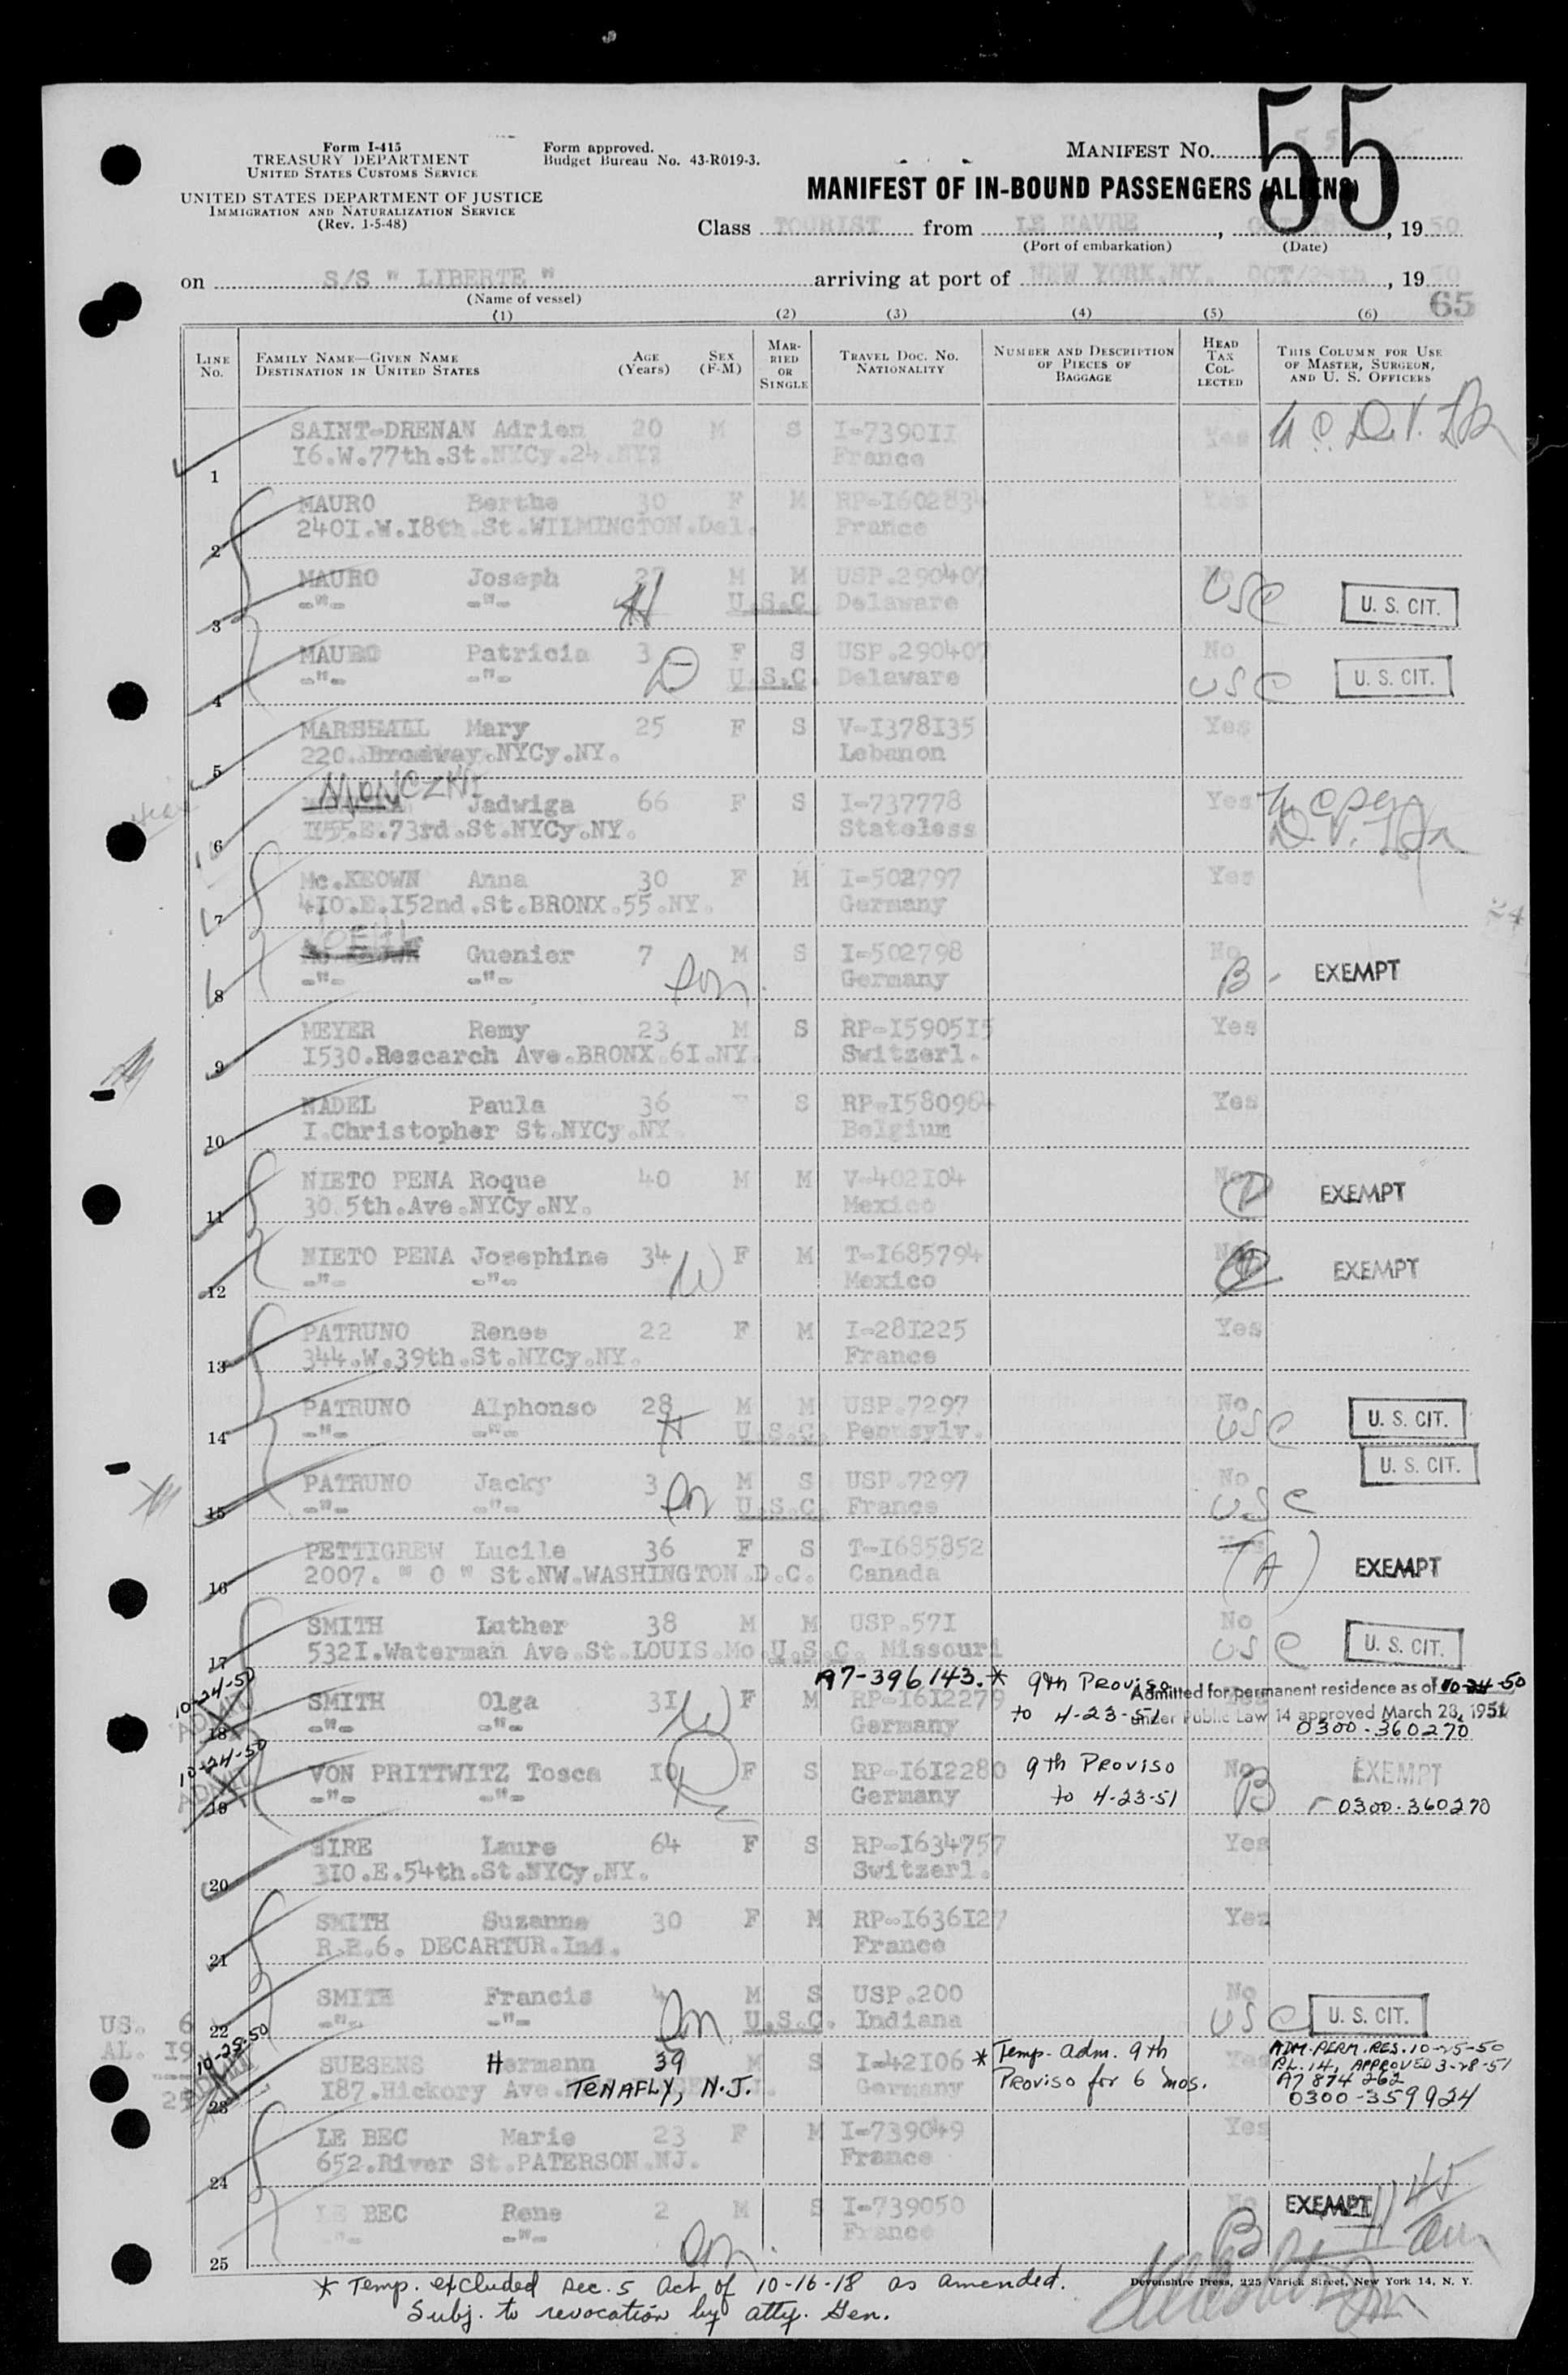 Form I-415
TREASURY DEPARTMENT
UNITED STATES CUSTOMS SERVICE
UNITED STATES DEPARTMENT OF JUSTICE
IMMIGRATION AND NATURALIZATION SERVICE
(Rev. 1-5-48)
Form approved.
Budget Bureau No. 43-R019-3.
MANIFEST NO.
55
MANIFEST OF IN-BOUND PASSENGERS (ALIENS)
Class TOURIST from LE HAVRE, 1950
(Port of embarkation) (Date)
on S/S " LIBERTE " arriving at port of NEW YORK.NY. OCT/24th, 1950
(Name of vessel)
65
(1) (2) (3) (4) (5) (6)
LINE NO.
FAMILY NAME—GIVEN NAME
DESTINATION IN UNITED STATES
AGE (Years)
SEX (F-M)
MARRIED OR SINGLE
TRAVEL DOC. NO.
NATIONALITY
NUMBER AND DESCRIPTION OF PIECES OF BAGGAGE
HEAD TAX COLLECTED
THIS COLUMN FOR USE OF MASTER, SURGEON, AND U. S. OFFICERS
SAINT-DRENAN Adrien 20 M S I-7390II Yes
1 I6.W.77th.St.NYCy.24.NY France
MAURO Berthe 30 F M RP-I602834 Yes
2 240I.W.I8th.St.WILMINGTON.Del. France
MAURO Joseph 27 H M M USP.290407 No USC U. S. CIT.
3 -"- -"- U.S.C. Delaware
MAURO Patricia 3 D F S USP.290407 No USC U. S. CIT.
4 -"- -"- U.S.C. Delaware
MARSHALL Mary 25 F S V-I378I35 Yes
5 220.Brodway.NYCy.NY. Lebanon
Jadwiga 66 F S I-737778 Yes
6 I55.E.73rd.St.NYCy.NY. Stateless
Mc.KEOWN Anna 30 F M I-502797 Yes
7 4I0.E.I52nd.St.BRONX.55.NY. Germany
Guenier 7 Son M S I-502798 No B - EXEMPT
8 -"- -"- Germany
MEYER Remy 23 M S RP-I5905I5 Yes
9 I530.Rescarch Ave.BRONX.6I.NY. Switzerl.
NADEL Paula 36 S RP-I580964 Yes
10 I.Christopher St.NYCy.NY Belgium
NIETO PENA Roque 40 M M V-402I04 No EXEMPT
11 30.5th.Ave.NYCy.NY. Mexico
NIETO PENA Josephine 34 W F M T-I685794 EXEMPT
12 -"- -"- Mexico
PATRUNO Renee 22 F M I-28I225 Yes
13 344.W.39th.St.NYCy.NY. France
PATRUNO Alphonso 28 H M M USP.7297 No USC U. S. CIT.
14 -"- -"- U.S.C. Pennsylv.
PATRUNO Jacky 3 Son M S USP.7297 No USC U. S. CIT.
15 -"- -"- U.S.C. France
PETTIGREW Lucile 36 F S T-I685852 (A) EXEMPT
16 2007. " O " St.NW.WASHINGTON.D.C. Canada
SMITH Luther 38 M M USP.57I No USC U. S. CIT.
17 532I.Waterman Ave.St.LOUIS.Mo.U.S.C. Missouri
A7-396143.* 9th Proviso
to 4-23-51
10-24-50
SMITH Olga 3I W F M RP-I6I2279
18 -"- -"- Germany
Admitted for permanent residence as of 10-24-50
under Public Law 14 approved March 28, 1951
0300-360270
10-24-50
VON PRITTWITZ Tosca I0 F S RP-I6I2280 9th Proviso No B EXEMPT
19 -"- -"- Germany to 4-23-51 0300-360270
SIRE Laure 64 F S RP-I634757 Yes
20 3I0.E.54th.St.NYCy.NY. Switzerl.
SMITH Suzanne 30 F M RP-I636I27 Yes
21 R.R.6. DECARTUR.Ind. France
SMITH Francis 4 Son M S USP.200 No USC U. S. CIT.
22 -"- -"- U.S.C. Indiana
US. 6
AL. 19
25
10-25-50
SUESENS Hermann 39 M S I-42I06 * Temp. adm. 9th Yes
23 I87.Hickory Ave. TENAFLY, N.J. Germany Proviso for 6 mos.
ADM. PERM. RES. 10-25-50
P.L. 14, APPROVED 3-28-51
A7 874 262
0300-359924
LE BEC Marie 23 F M I-739049 Yes
24 652.River St.PATERSON.NJ. France
LE BEC Rene 2 Son M S I-739050 No B EXEMPT
25 -"- -"- France
* Temp. excluded Sec. 5 Act of 10-16-18 as amended.
Subj. to revocation by atty. Gen.
Devonshire Press, 225 Varick Street, New York 14, N. Y.